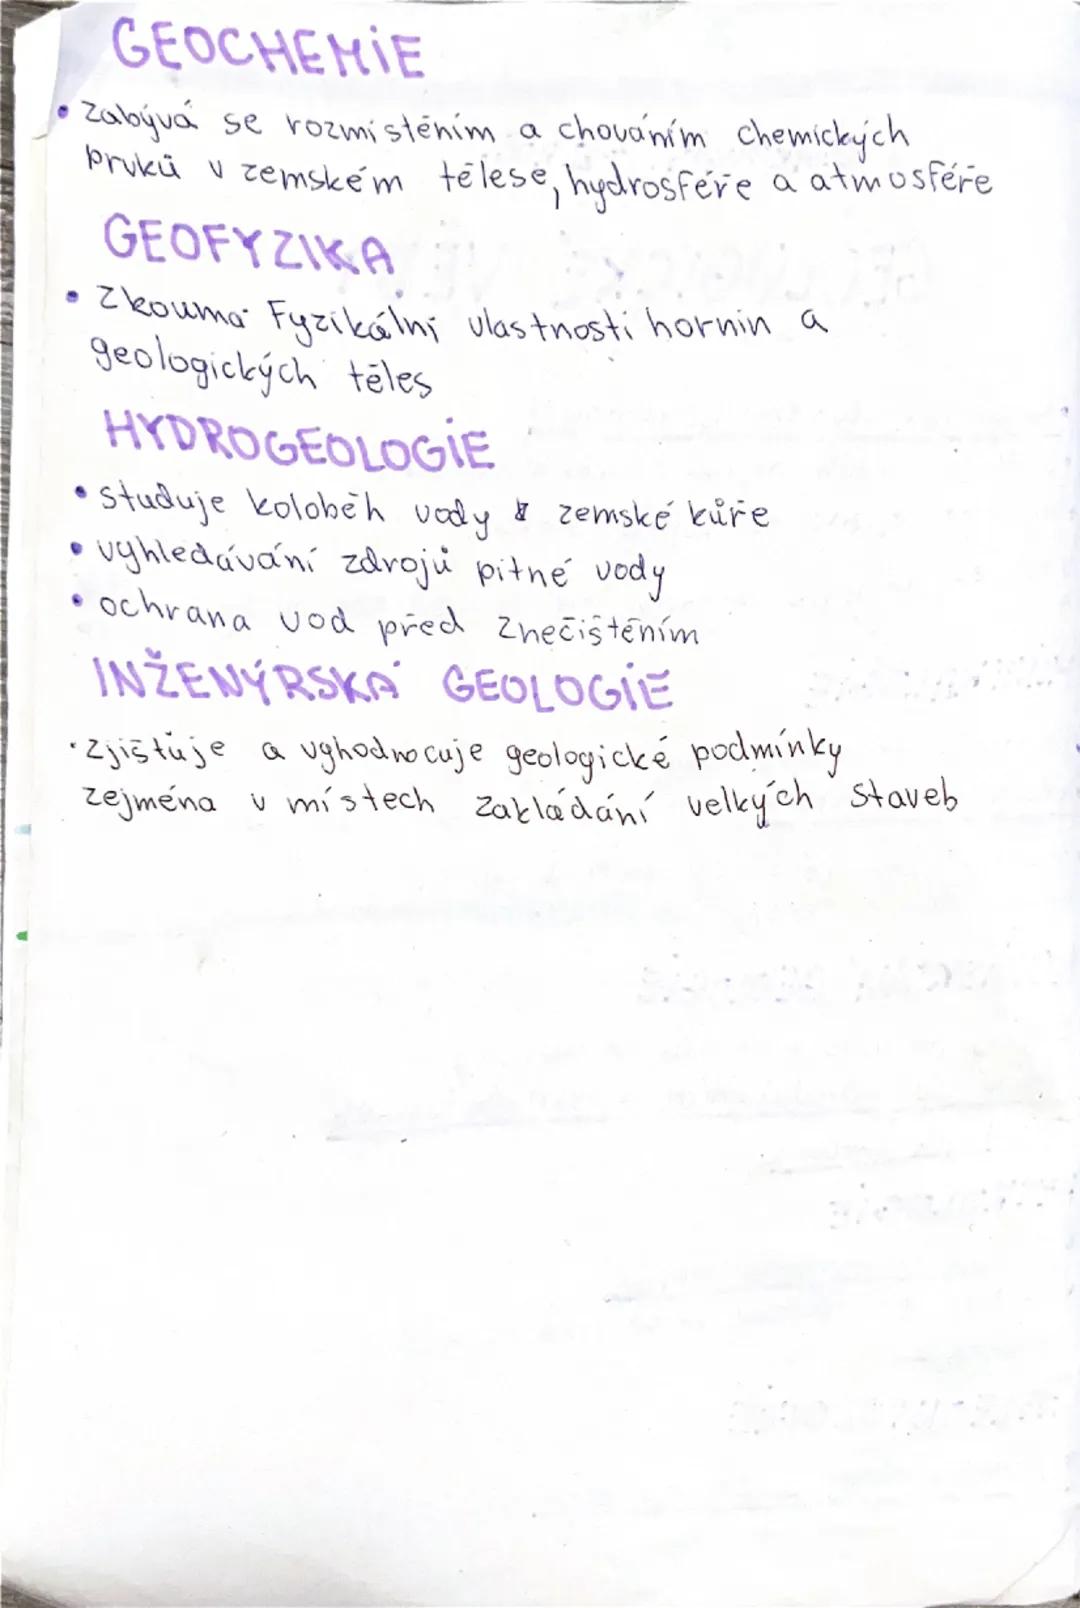 GEOCHEMIE
• Zabývá se rozmistěním a chováním chemických
prvků v zemském tělese, hydrosféře a atmosféře
GEOFYZIKA
• Zkoumá Fyzikální vlastnosti hornin a
geologických těles
HYDROGEOLOGIE
• studuje koloběh vody v zemské kůře
• vyhledávání zdrojů pitné vody
• ochrana vod před znečištěním
INŽENÝRSKÁ GEOLOGIE
• Zjišťuje a vyhodnocuje geologické podmínky
zejména v místech zakládání velkých staveb